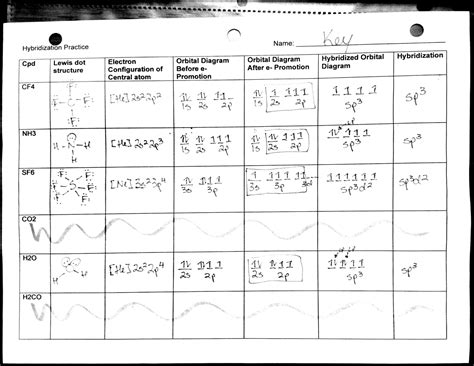 Hybridization Practice
Name: Key
Cpd
Lewis dot structure
Electron Configuration of Central atom
Orbital Diagram Before e- Promotion
Orbital Diagram After e- Promotion
Hybridized Orbital Diagram
Hybridization
CF4
F C F
[He]2s²2p²
1s 2s 2p
1s 2s 2p
sp³
sp³
NH3
H N H
[He]2s²2p³
1s 2s 2p
1s 2s 2p
sp³
sp³
SF6
S
[Ne]3s²3p⁴
3s 3p
3s 3p 3d
sp³d²
sp³d²
CO2
H2O
H H
[He]2s²2p⁴
1s 2s 2p
1s 2s 2p
sp³
sp³
H2CO